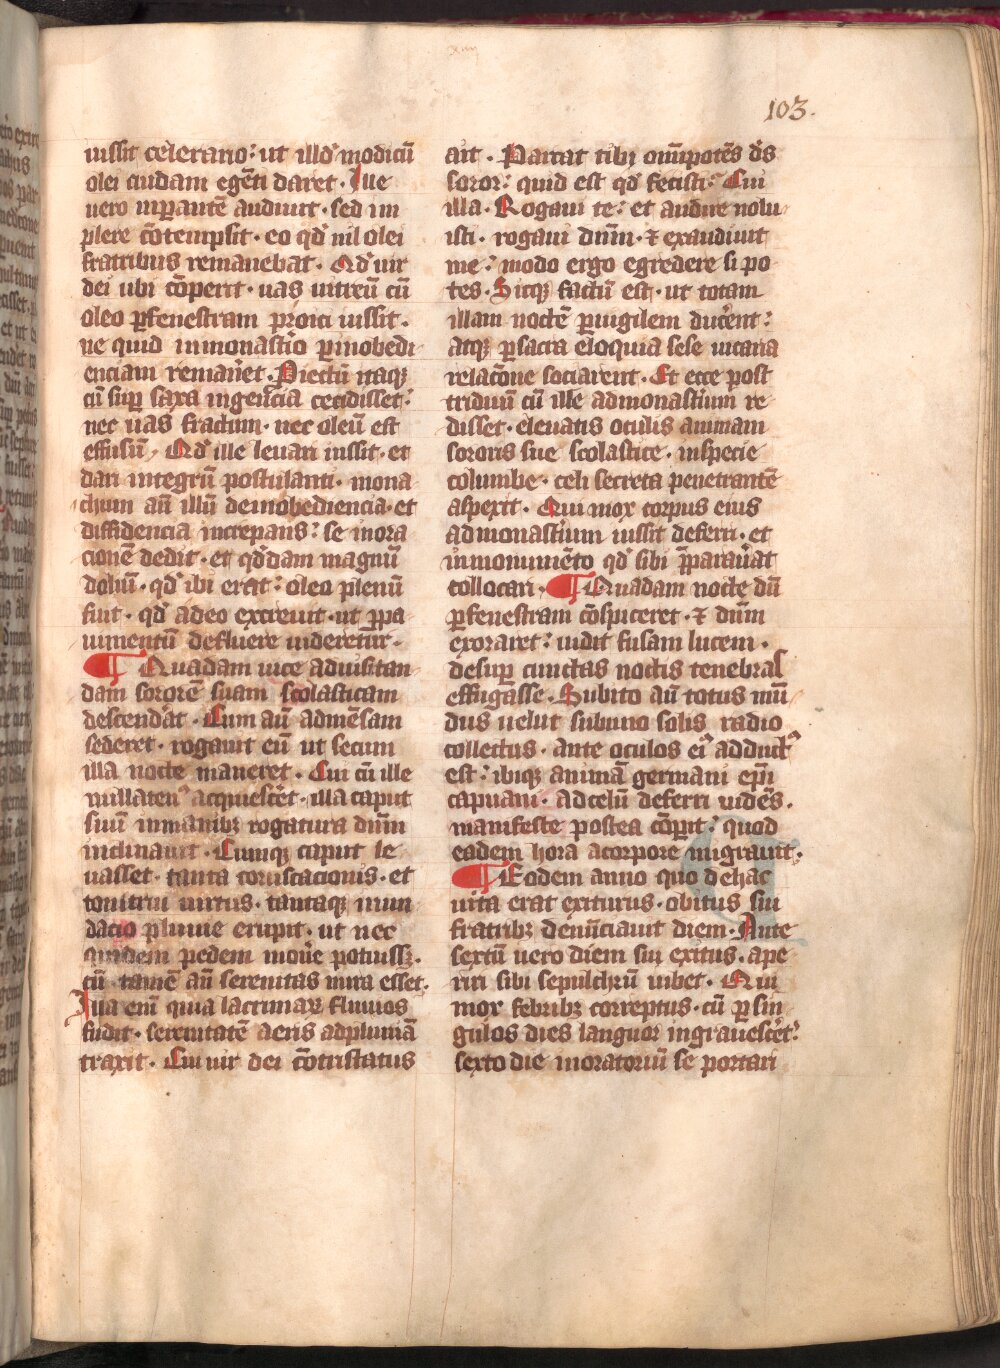 xiiij
103.
iussit celerario: ut illd̕ modicū
olei cuidam egēti daret. Ille
uero inperantē audiuit. sed im
plere cōtempsit. eo qd̕ nil olei
fratribus remanebat. Qd̕ uir
dei ubi cōperit. uas uitreū cū
oleo ꝑ fenestram proici iussit.
ne quid in monastīo ꝑ inobedi
enciam remanēet. Proiectū itaqꝫ
cū suꝑ saxa ingencia cecidisset:
nec uas fractum. nec oleū est
effusū. Qd̕ ille leuari iussit. et
dari integrū postulanti. mona
chum aū illū de inobediencia. et
diffidencia increpans: se in ora
cionē dedit. et qd̕dam magnū
doliū. qd̕ ibi erat: oleo plenū
fuit. qd̕ adeo excreuit. ut ꝑ pa
uimentū defluere uideretur.
¶ Quadam uice ad uisitan
dam sororē suam scolasticam
descendāt. Cum aū ad mēsam
sederet. rogauit eū ut secum
illa nocte maneret. Cui cū ille
nullaten᾿ acquiescēt. illa caput
suū in manibꝫ rogatura dn̄m
inclinauit. Cumqꝫ caput le
uasset. tanta coruscacionis. et
tonitrui uirtus. tantaqꝫ inun
dacio pluuie erupit. ut nec
quidem pedem mouē potuissꝫ.
cū tamē aū serenitas mira esset.
Illa enī quia lacrimaꝝ fluuios
fudit. serenitatē aeris ad pluuiā
traxit. Cui uir dei cōtristatus
ait. Parcat tibi omīpotēs d̄s
soror: quid est qd̕ fecisti: Cui
illa. Rogaui te: et audire nolu
isti. rogaui dn̄m. ⁊ exaudiuit
me: modo ergo egredere si po
tes. Sicqꝫ factū est. ut totam
illam noctē ꝑuigilem ducēent:
atqꝫ ꝑ sacra eloquia sese uicaria
relacōne sociarent. Et ecce post
triduū cū ille ad monastīum re
disset. eleuatis oculis animam
sororis sue scolastice. in specie
columbe. celi secreta penetrantē
aspexit. Qui mox corpus eius
ad monastīum iussit deferri. et
in monumēto qd̕ sibi p̄parauāt
collocari. ¶ Quadam nocte dū
ꝑ fenestram cōspiceret. ⁊ dn̄m
exoraret: uidit fusam lucem.
desuꝑ cunctas noctis tenebras
effugasse. Subito aū totus mū
dus uelut sub uno solis radio
collectus. ante oculos ei᾿ adduct᾿
est: ibiqꝫ animā germani ep̄i
capuani. ad celū deferri uidēs.
manifeste postea cōꝑit: quod
eadem hora a corpore migrauit.
¶ Eodem anno quo de hac
uita erat exiturus. obitus sui
fratribꝫ denūciauit diem. Ante
sextū uero diem sui exitus. ape
riri sibi sepulchrū iubet. Qui
mox febribꝫ correptus. cū ꝑ sin
gulos dies languor ingrauescēt:
sexto die in oratoriū se portari